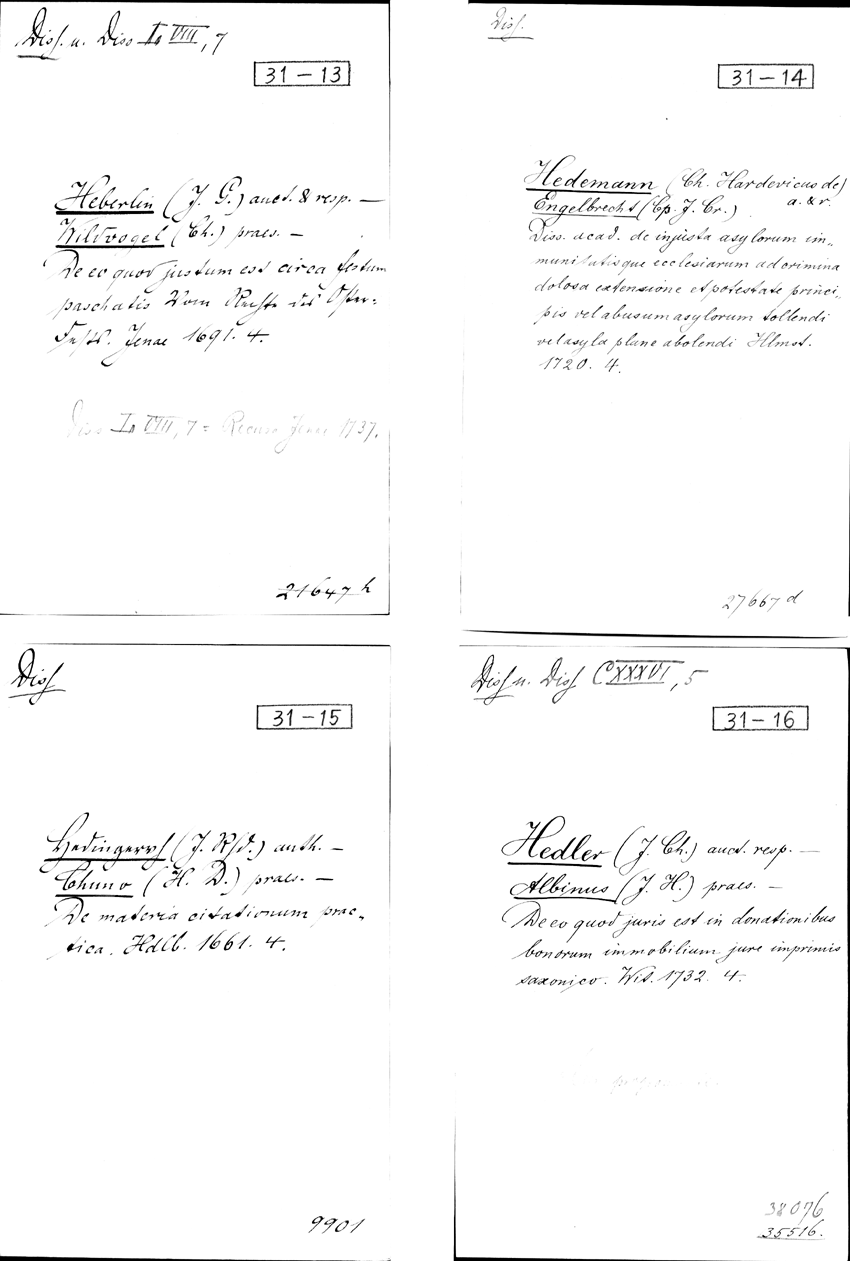 Diss. u. Diss I, VIII, 7
31-13
Heberlin (J. G.) auct. & resp. —
Wildvogel (Ch.) praes. —
De eo quod justum est circa festum
paschatis Vom Rechte des Oster-
Fests. Jenae 1691. 4.
Diss I, VIII, 7 = Recusa Jenae 1737.
21647 h
Diss.
31-14
Hedemann (Ch. Hardevicus de)
a. & r.
Engelbrecht (Cp. J. Cr.)
Diss. acad. de injusta asylorum im-
munitatisque ecclesiarum ad crimina
dolosa extensione et potestate princi-
pis vel abusum asylorum tollendi
vel asyla plane abolendi Hlmst.
1720. 4.
27667 d
Diss
31-15
(J. Rhd.) auth. —
Chuno (H. D.) praes. —
De materia citationum prac-
tica. Hdlb. 1661. 4.
9901
Diss u. Diss CXXXVI, 5
31-16
Hedler (J. Ch.) auct. resp. —
Albinus (J. H.) praes. —
De eo quod juris est in donationibus
bonorum immobilium jure imprimis
saxonico. Wit. 1732. 4.
38076
35516.